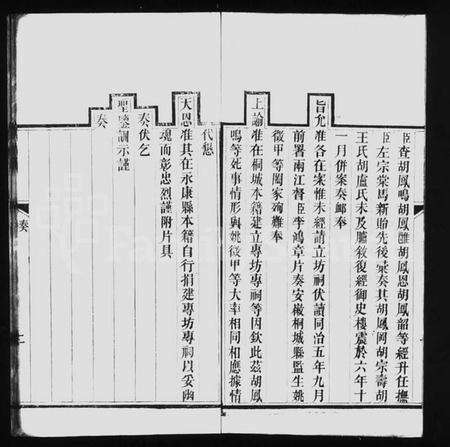 臣查胡鳳鳴胡鳳雝胡鳳恩胡鳳韶等經升任撫
臣左宗棠馬新貽先後彙奏其胡鳳岡胡宗壽胡
王氏胡盧氏未及臚敘復經御史樓震於六年十
一月併案奏卹奉
旨允准各在案惟未經請立坊祠伏讀同治五年九月
前署兩江督臣李鴻章片奏安徽桐城縣監生姚
徵甲等闔家殉難奉
上諭准在桐城本籍建立專坊專祠等因欽此茲胡鳳
鳴等死事情形與姚徵甲等大率相同相應據情
代懇
天恩准其在永康縣本籍自行捐建專坊專祠以妥幽
魂而彰忠烈謹附片具
奏伏乞
聖鑒訓示謹
奏
奏